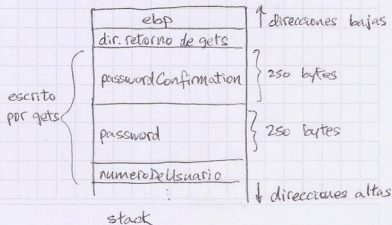 ebp
↑ direcciones bajas
dir. retorno de gets
passwordConfirmation
250 bytes
escrito
por gets
password
250 bytes
numeroDeUsuario
⋮
↓ direcciones altas
stack